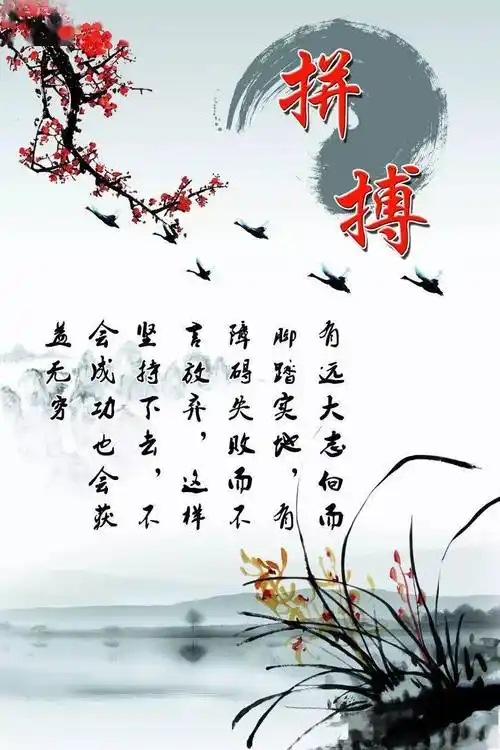 拼搏
有远大志向而
脚踏实地，有
障碍失败而不
言放弃，这样
坚持下去，不
会成功也会获
益无穷